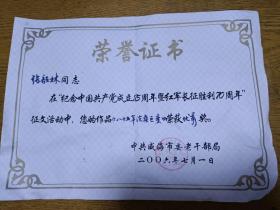 荣誉证书
同志
在“纪念中国共产党成立85周年暨红军长征胜利70周年”
征文活动中，您的作品荣获优秀奖。
中共威海市委老干部局
二〇〇六年七月一日